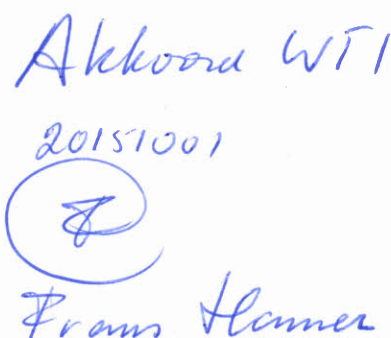 Akkoord WTI
20151001
Frans Hamer